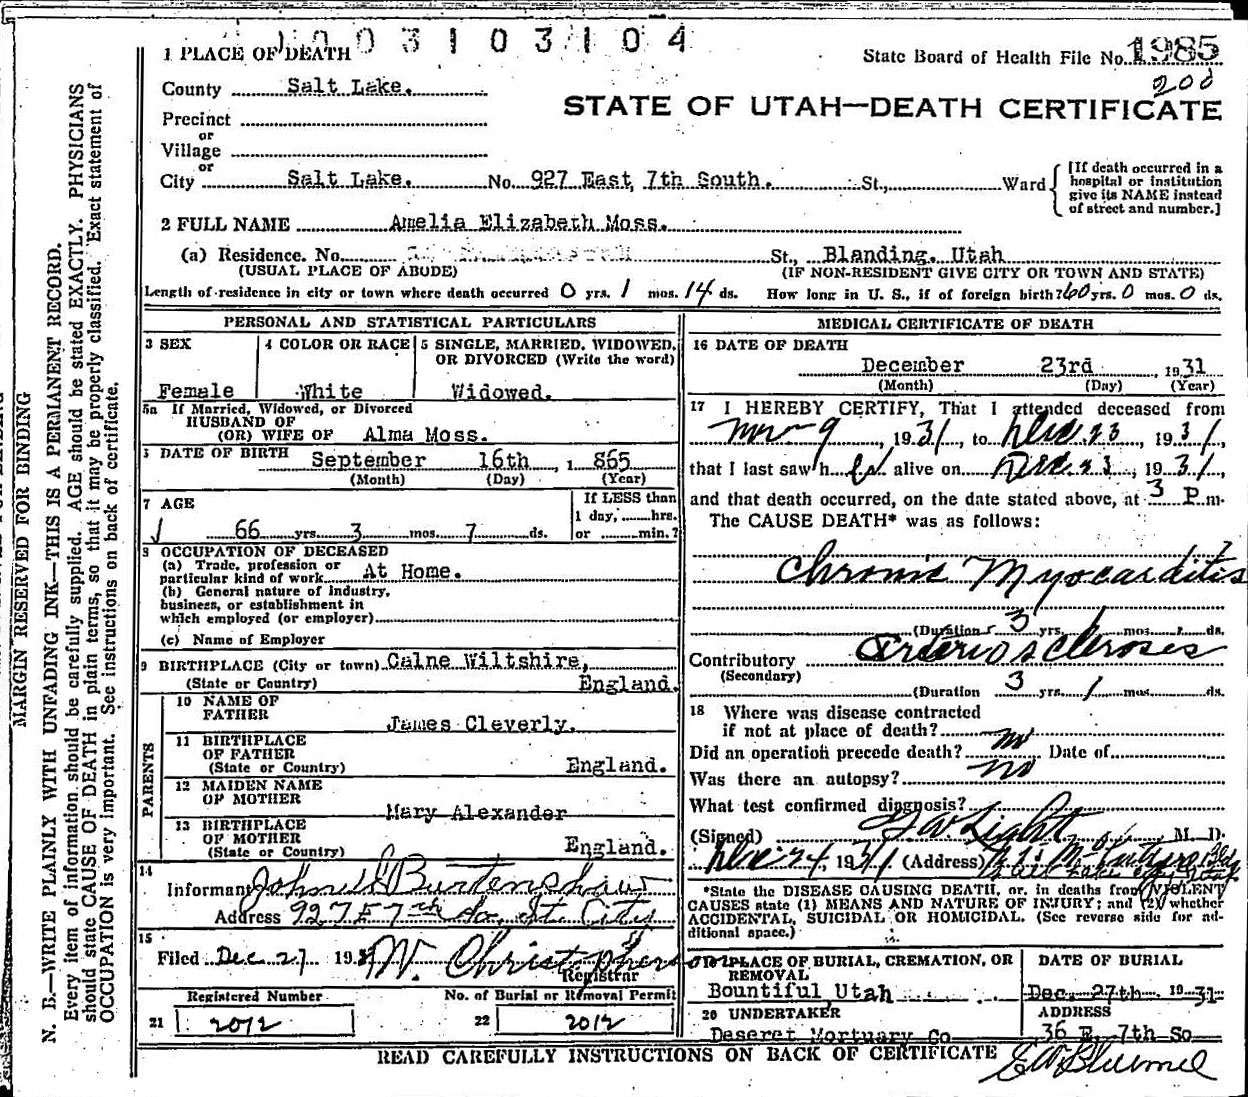 1003103104
1 PLACE OF DEATH
State Board of Health File No. 1985
200
County Salt Lake.
STATE OF UTAH—DEATH CERTIFICATE
Precinct
or
Village
or
City Salt Lake. No. 927 East 7th South. St., Ward
[If death occurred in a hospital or institution give its NAME instead of street and number.]
2 FULL NAME Amelia Elizabeth Moss.
(a) Residence. No. St., Blanding, Utah
(USUAL PLACE OF ABODE) (IF NON-RESIDENT GIVE CITY OR TOWN AND STATE)
Length of residence in city or town where death occurred 0 yrs. 1 mos. 14 ds. How long in U. S., if of foreign birth? 60 yrs. 0 mos. 0 ds.
PERSONAL AND STATISTICAL PARTICULARS
3 SEX
Female
4 COLOR OR RACE
White
5 SINGLE, MARRIED, WIDOWED, OR DIVORCED (Write the word)
Widowed.
5a If Married, Widowed, or Divorced
HUSBAND OF
(OR) WIFE OF Alma Moss.
DATE OF BIRTH September 16th, 1865
(Month) (Day) (Year)
7 AGE
66 yrs. 3 mos. 7 ds.
If LESS than
1 day, hrs.
or min.?
8 OCCUPATION OF DECEASED
(a) Trade, profession or
particular kind of work At Home.
(b) General nature of industry,
business, or establishment in
which employed (or employer)
(c) Name of Employer
9 BIRTHPLACE (City or town) Calne Wiltshire,
(State or Country) England.
PARENTS
10 NAME OF
FATHER James Cleverly.
11 BIRTHPLACE
OF FATHER
(State or Country) England.
12 MAIDEN NAME
OF MOTHER Mary Alexander
13 BIRTHPLACE
OF MOTHER
(State or Country) England.
14
Informant Burtenshaw
Address 927 E 7th So. St. City
15
Filed Dec 27 193 W. Christopherson
Registrar
Registered Number
21 2012
No. of Burial or Removal Permit
22 2012
MEDICAL CERTIFICATE OF DEATH
16 DATE OF DEATH
December 23rd, 1931
(Month) (Day) (Year)
17 I HEREBY CERTIFY, That I attended deceased from
Nov 9, 1931, to Dec. 23, 1931,
that I last saw her alive on Dec. 23, 1931,
and that death occurred, on the date stated above, at 3 P.m.
The CAUSE DEATH* was as follows:
Chronic Myocarditis
(Duration 3 yrs. 1 mos. ds.
Contributory Arteriosclerosis
(Secondary)
(Duration 3 yrs. 1 mos. ds.
18 Where was disease contracted
if not at place of death?
Did an operation precede death? no Date of
Was there an autopsy? no
What test confirmed diagnosis?
(Signed) Light, M. D.
Dec 24, 1931 (Address) Bldg
*State the DISEASE CAUSING DEATH, or, in deaths from VIOLENT
CAUSES state (1) MEANS AND NATURE OF INJURY; and (2) whether
ACCIDENTAL, SUICIDAL OR HOMICIDAL. (See reverse side for ad-
ditional space.)
PLACE OF BURIAL, CREMATION, OR
REMOVAL
Bountiful Utah
DATE OF BURIAL
Dec. 27th 1931
20 UNDERTAKER
Deseret Mortuary Co
ADDRESS
36 E. 7th So
READ CAREFULLY INSTRUCTIONS ON BACK OF CERTIFICATE
MARGIN RESERVED FOR BINDING
N. B.—WRITE PLAINLY WITH UNFADING INK—THIS IS A PERMANENT RECORD.
Every item of information should be carefully supplied. AGE should be stated EXACTLY. PHYSICIANS
should state CAUSE OF DEATH in plain terms, so that it may be properly classified. Exact statement of
OCCUPATION is very important. See instructions on back of certificate.